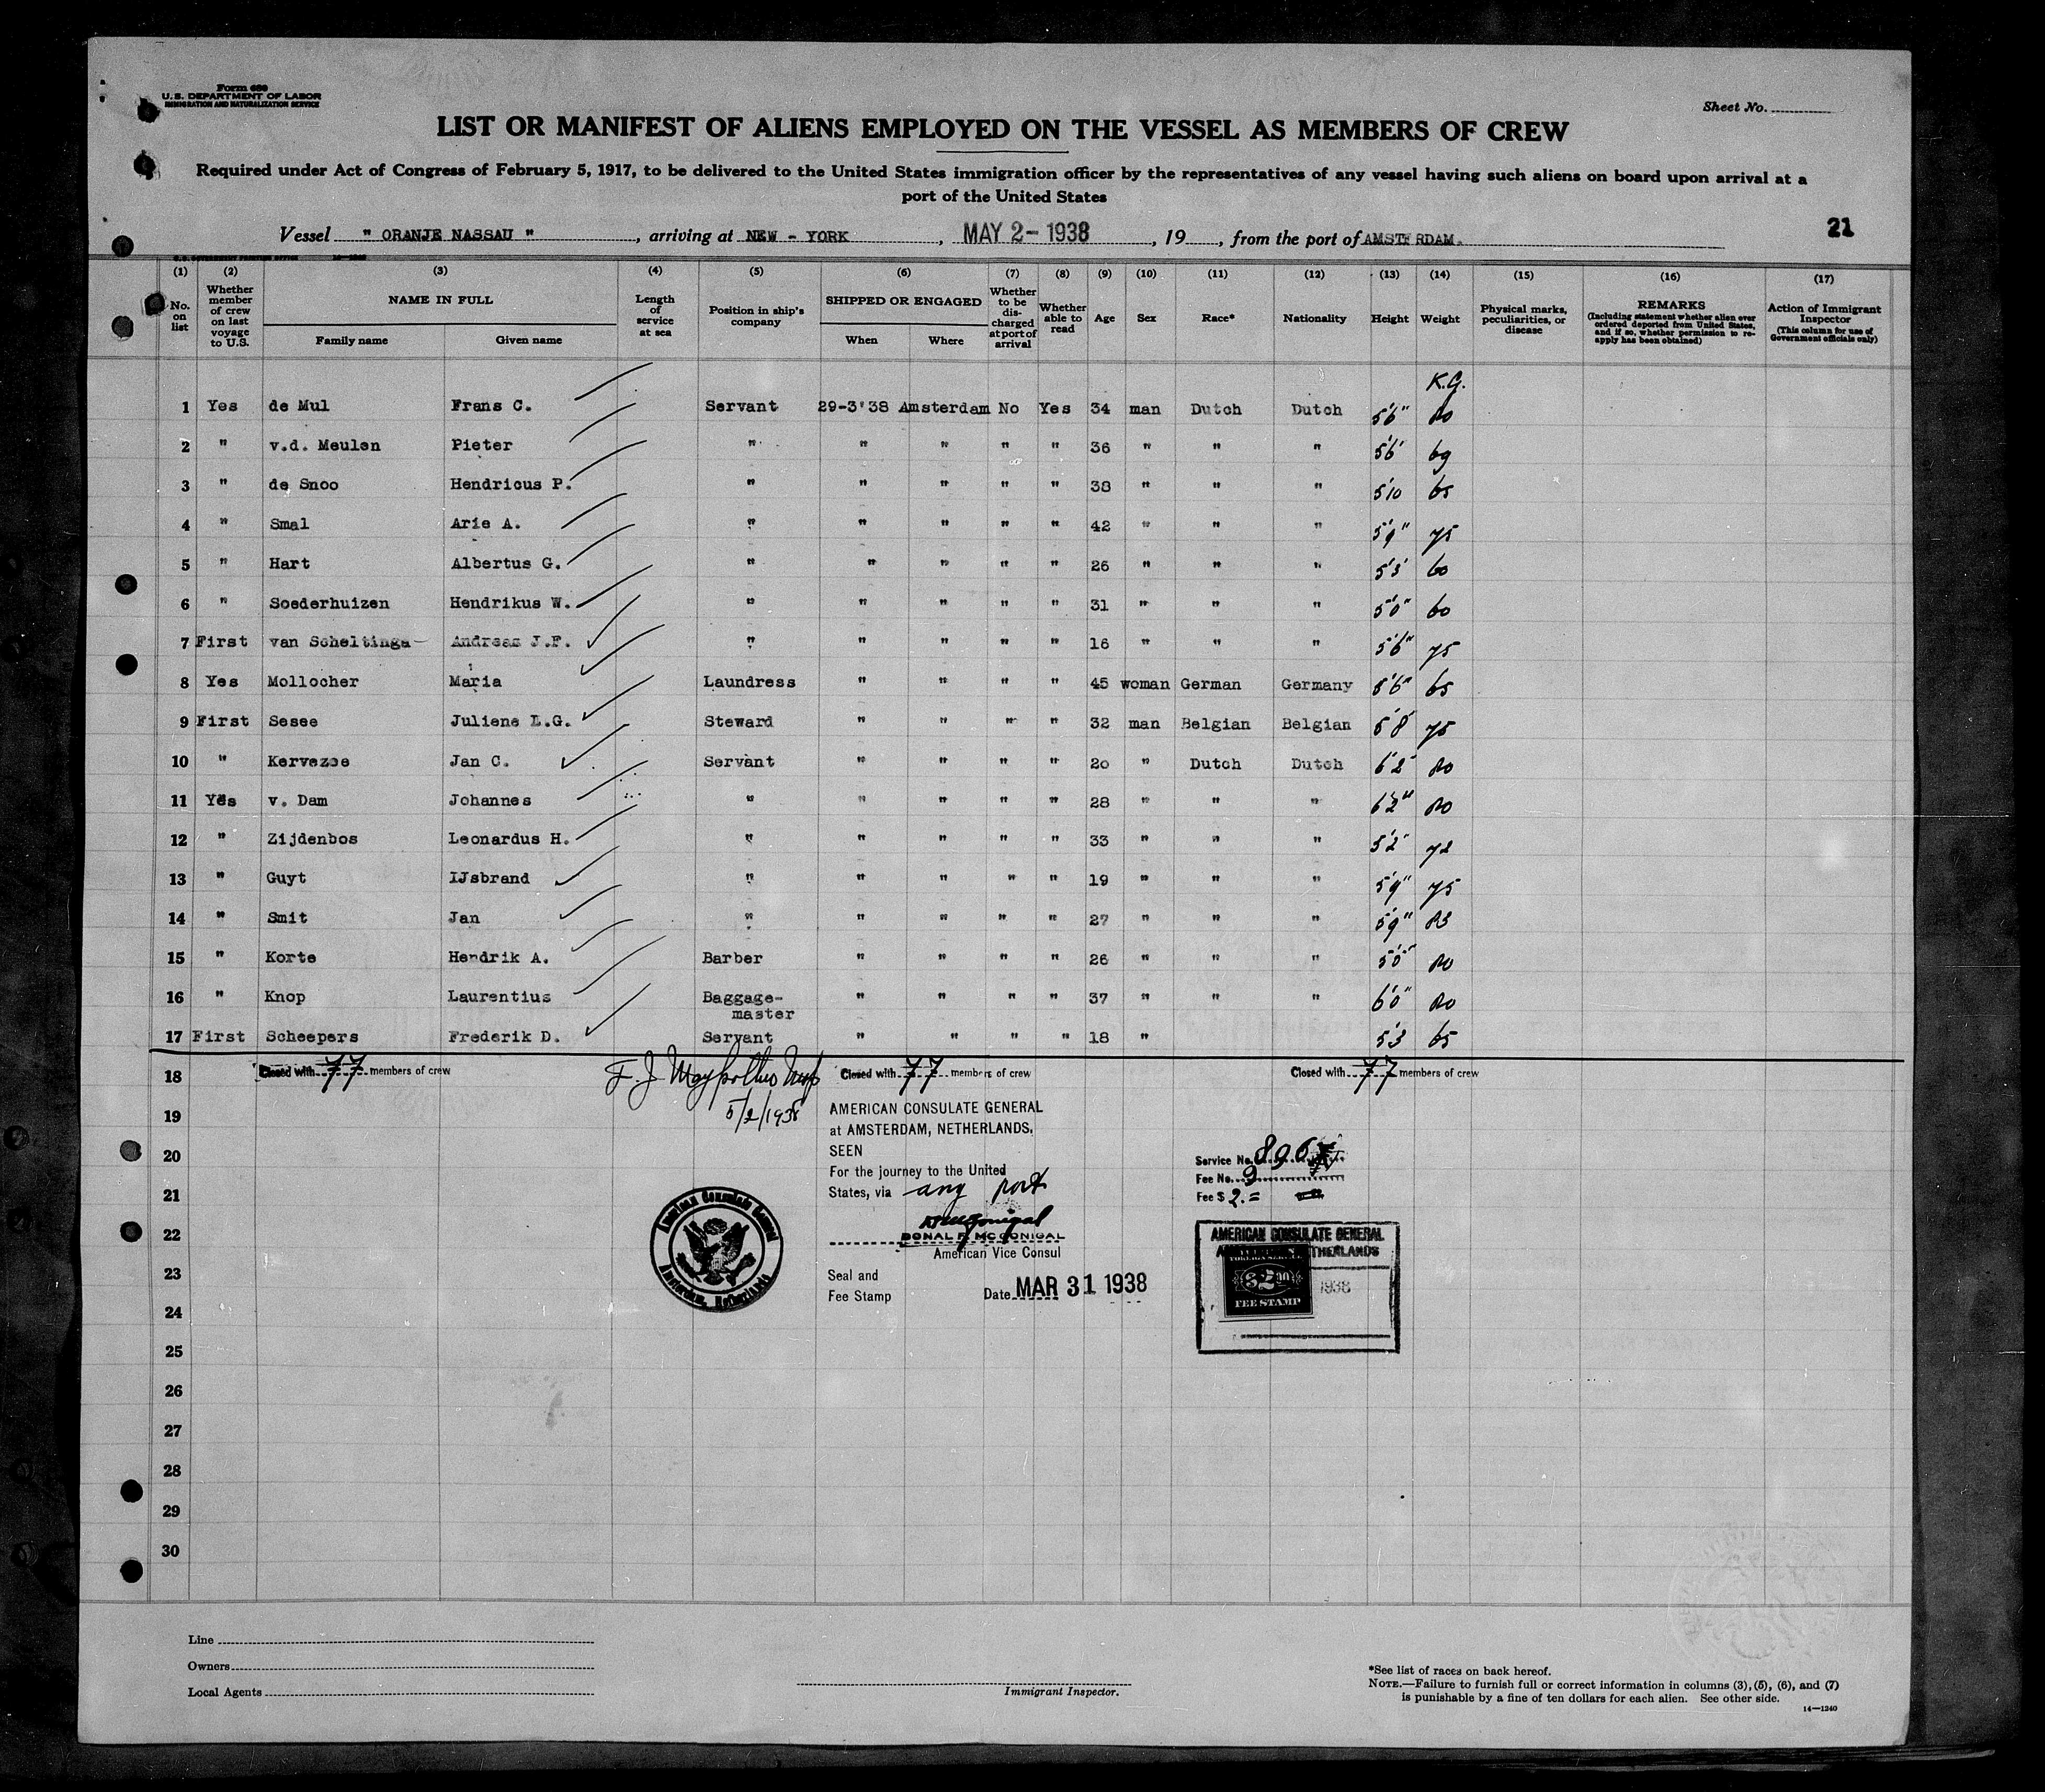 Form 689
U. S. DEPARTMENT OF LABOR
IMMIGRATION AND NATURALIZATION SERVICE
Sheet No.
LIST OR MANIFEST OF ALIENS EMPLOYED ON THE VESSEL AS MEMBERS OF CREW
Required under Act of Congress of February 5, 1917, to be delivered to the United States immigration officer by the representatives of any vessel having such aliens on board upon arrival at a
port of the United States
Vessel " ORANJE NASSAU ", arriving at NEW - YORK, MAY 2 - 1938, 19, from the port of AMSTERDAM. 21
(1) (2) (3) (4) (5) (6) (7) (8) (9) (10) (11) (12) (13) (14) (15) (16) (17)
No. on list Whether member of crew on last voyage to U.S. NAME IN FULL Family name Given name Length of service at sea Position in ship's company SHIPPED OR ENGAGED When Where Whether to be discharged at port of arrival Whether able to read Age Sex Race* Nationality Height Weight Physical marks, peculiarities, or disease REMARKS (Including statement whether alien ever ordered deported from United States, and if so, whether permission to re-apply has been obtained) Action of Immigrant Inspector (This column for use of Government officials only)
K.G.
1 Yes de Mul Frans C. Servant 29-3'38 Amsterdam No Yes 34 man Dutch Dutch 5'6" 80
2 " v.d. Meulen Pieter " " " " " 36 " " " 5'6' 69
3 " de Snoo Hendricus P. " " " " " 38 " " " 5'10 65
4 " Smal Arie A. " " " " " 42 " " " 5'9" 75
5 " Hart Albertus G. " " " " " 26 " " " 5'3' 60
6 " Soederhuizen Hendrikus W. " " " " " 31 " " " 5'0" 60
7 First van Scheltinga Andreas J.F. " " " " " 16 " " " 5'6" 75
8 Yes Mollocher Maria Laundress " " " " 45 woman German Germany 5'6" 65
9 First Sesee Juliene L.G. Steward " " " " 32 man Belgian Belgian 5'8 75
10 " Kervezee Jan C. Servant " " " " 20 " Dutch Dutch 6'2" 80
11 Yes v. Dam Johannes " " " " " 28 " " " 6'2" 80
12 " Zijdenbos Leonardus H. " " " " " 33 " " " 5'2" 72
13 " Guyt IJsbrand " " " " " 19 " " " 5'9" 75
14 " Smit Jan " " " " " 27 " " " 5'9" 83
15 " Korte Hendrik A. Barber " " " " 26 " " " 5'0" 80
16 " Knop Laurentius Baggage-master " " " " 37 " " " 6'0" 80
17 First Scheepers Frederik D. Servant " " " " 18 " 5'3 65
18 Closed with 77 members of crew Closed with 77 members of crew Closed with 77 members of crew
5/2/1938
19 AMERICAN CONSULATE GENERAL
at AMSTERDAM, NETHERLANDS.
20 SEEN Service No. 896
For the journey to the United Fee No. 9
21 States, via any port Fee $ 2.=
American Consulate General
Amsterdam, Netherlands
22 DONAL F. MCGONIGAL
American Vice Consul
AMERICAN CONSULATE GENERAL
NETHERLANDS
23 Seal and
Fee Stamp Date MAR 31 1938
$2.00 1938
FEE STAMP
24
25
26
27
28
29
30
Line
Owners
Local Agents
Immigrant Inspector.
*See list of races on back hereof.
NOTE.—Failure to furnish full or correct information in columns (3), (5), (6), and (7)
is punishable by a fine of ten dollars for each alien. See other side.
14—1240